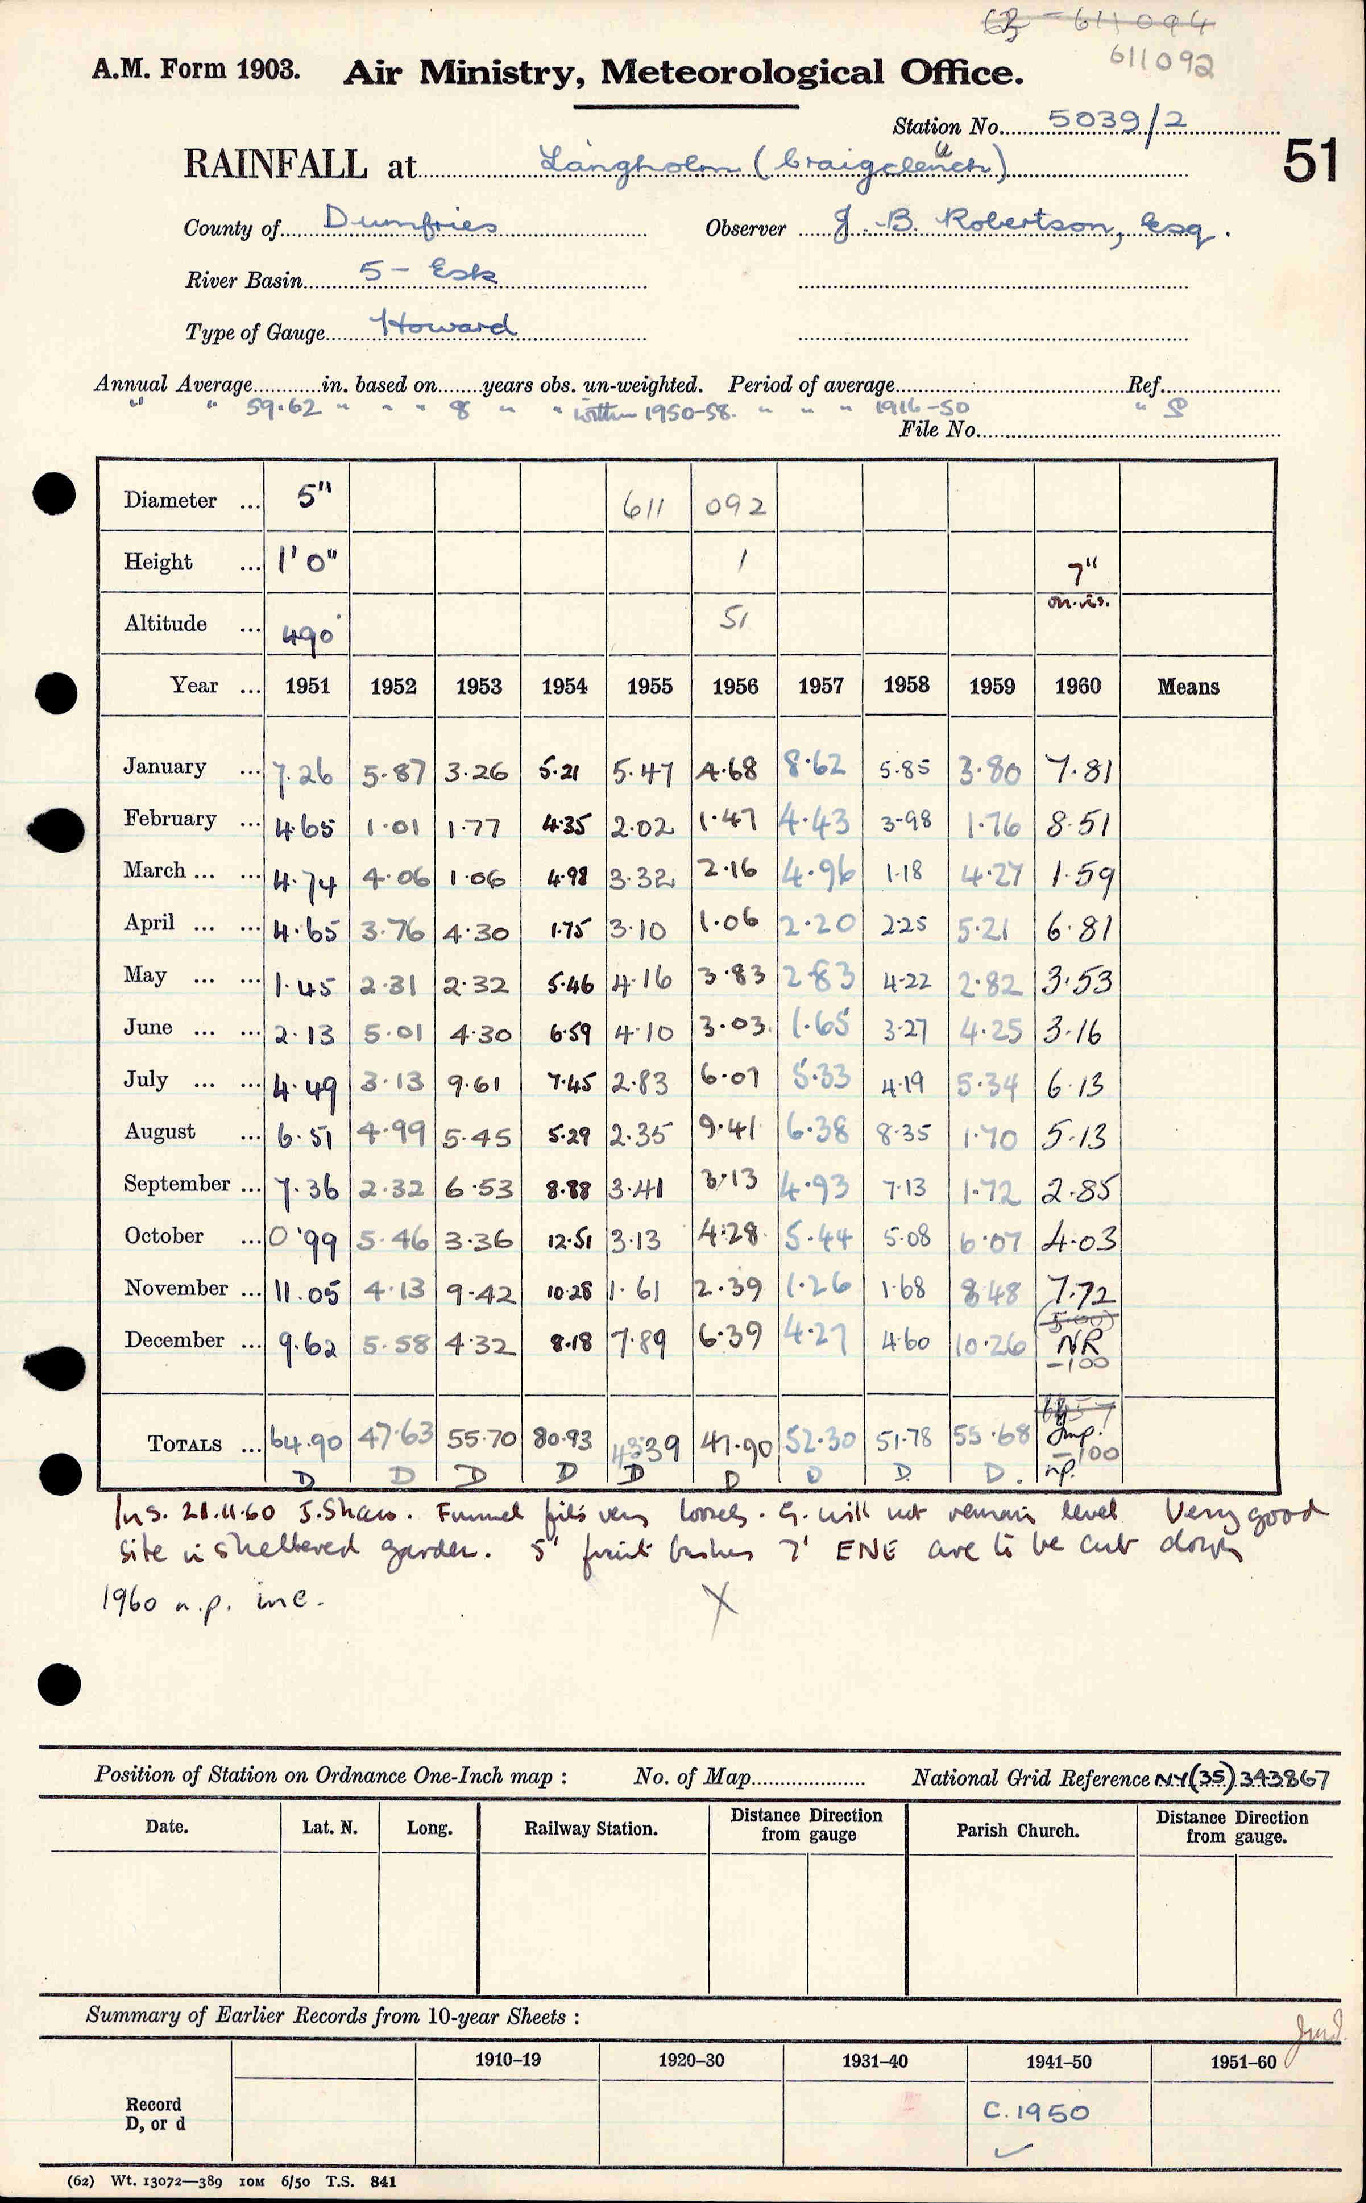 611094
611092
A.M. Form 1903. Air Ministry, Meteorological Office.
Station No. 5039/2
51
RAINFALL at Langholm (Craigcleuch)
County of Dumfries Observer J. B. Robertson, Esq.
River Basin 5 - Esk
Type of Gauge Howard
Annual Average in. based on years obs. un-weighted. Period of average Ref.
" " 59.62 " " " 8 " " within 1950-58. " " " 1916-50 " S
File No.
Diameter ... 5" 611 092
Height ... 1' 0" 1 7" on vis.
Altitude ... 490' 51
Year ... 1951 1952 1953 1954 1955 1956 1957 1958 1959 1960 Means
January ... 7.26 5.87 3.26 5.21 5.47 4.68 8.62 5.85 3.80 7.81
February ... 4.65 1.01 1.77 4.35 2.02 1.47 4.43 3.98 1.76 8.51
March ... ... 4.74 4.06 1.06 4.98 3.32 2.16 4.96 1.18 4.27 1.59
April ... ... 4.65 3.76 4.30 1.75 3.10 1.06 2.20 2.25 5.21 6.81
May ... ... 1.45 2.31 2.32 5.46 4.16 3.83 2.83 4.22 2.82 3.53
June ... ... 2.13 5.01 4.30 6.59 4.10 3.03 1.65 3.27 4.25 3.16
July ... ... 4.49 3.13 9.61 7.45 2.83 6.07 5.33 4.19 5.34 6.13
August ... 6.51 4.99 5.45 5.29 2.35 9.41 6.38 8.35 1.70 5.13
September ... 7.36 2.32 6.53 8.88 3.41 3.13 4.93 7.13 1.72 2.85
October ... 0.99 5.46 3.36 12.51 3.13 4.28 5.44 5.08 6.07 4.03
November ... 11.05 4.13 9.42 10.28 1.61 2.39 1.26 1.68 8.48 7.72
December ... 9.62 5.58 4.32 8.18 7.89 6.39 4.27 4.60 10.26 (5.00) NR -100
TOTALS ... 64.90 47.63 55.70 80.93 43.39 47.90 52.30 51.78 55.68 Imp. -100
D D D D D D D D D. np.
Ins. 21.11.60 J. Shaw. Funnel fits very loosely. G. will not remain level Very good
site in sheltered garden. 5' fruit bushes 7' ENE are to be cut down
1960 n.p. inc. X
Position of Station on Ordnance One-Inch map : No. of Map National Grid Reference NY(35) 343867
Date. Lat. N. Long. Railway Station. Distance Direction from gauge Parish Church. Distance Direction from gauge.
Summary of Earlier Records from 10-year Sheets :
1910–19 1920–30 1931–40 1941–50 1951–60
Record D, or d C. 1950
(62) Wt. 13072—389 10M 6/50 T.S. 841